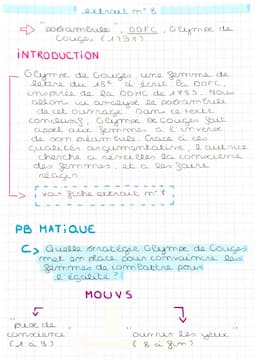 extrait n°8
"postambule", DDFC, Olympe de
Gouges (1791)
INTRODUCTION
Olympe de Gouges, une femme de
lettre du 18e a écrit la DDFC,
inspirée de la DDHC de 1789. Nous
allons ici analysé le postambule
de cet ouvrage. Dans ce texte
conclusif, Olympe de Gouges fait
appel aux femmes à l'inverse
de son préambule. Grâce à ces
qualités argumentative, l'autrice
cherche a réveiller la conscience
des femmes, et a les faire
réagir.
voir fiche extrait n°7
PB MATIQUE
Quelle stratégie Olympe de Gouges
met en place pour convaincre les
femmes de combattre pour
l'égalité ?
MOUVS
"prise de
conscience"
(1 à 8)
"ouvrir les yeux"
(8 à fin)